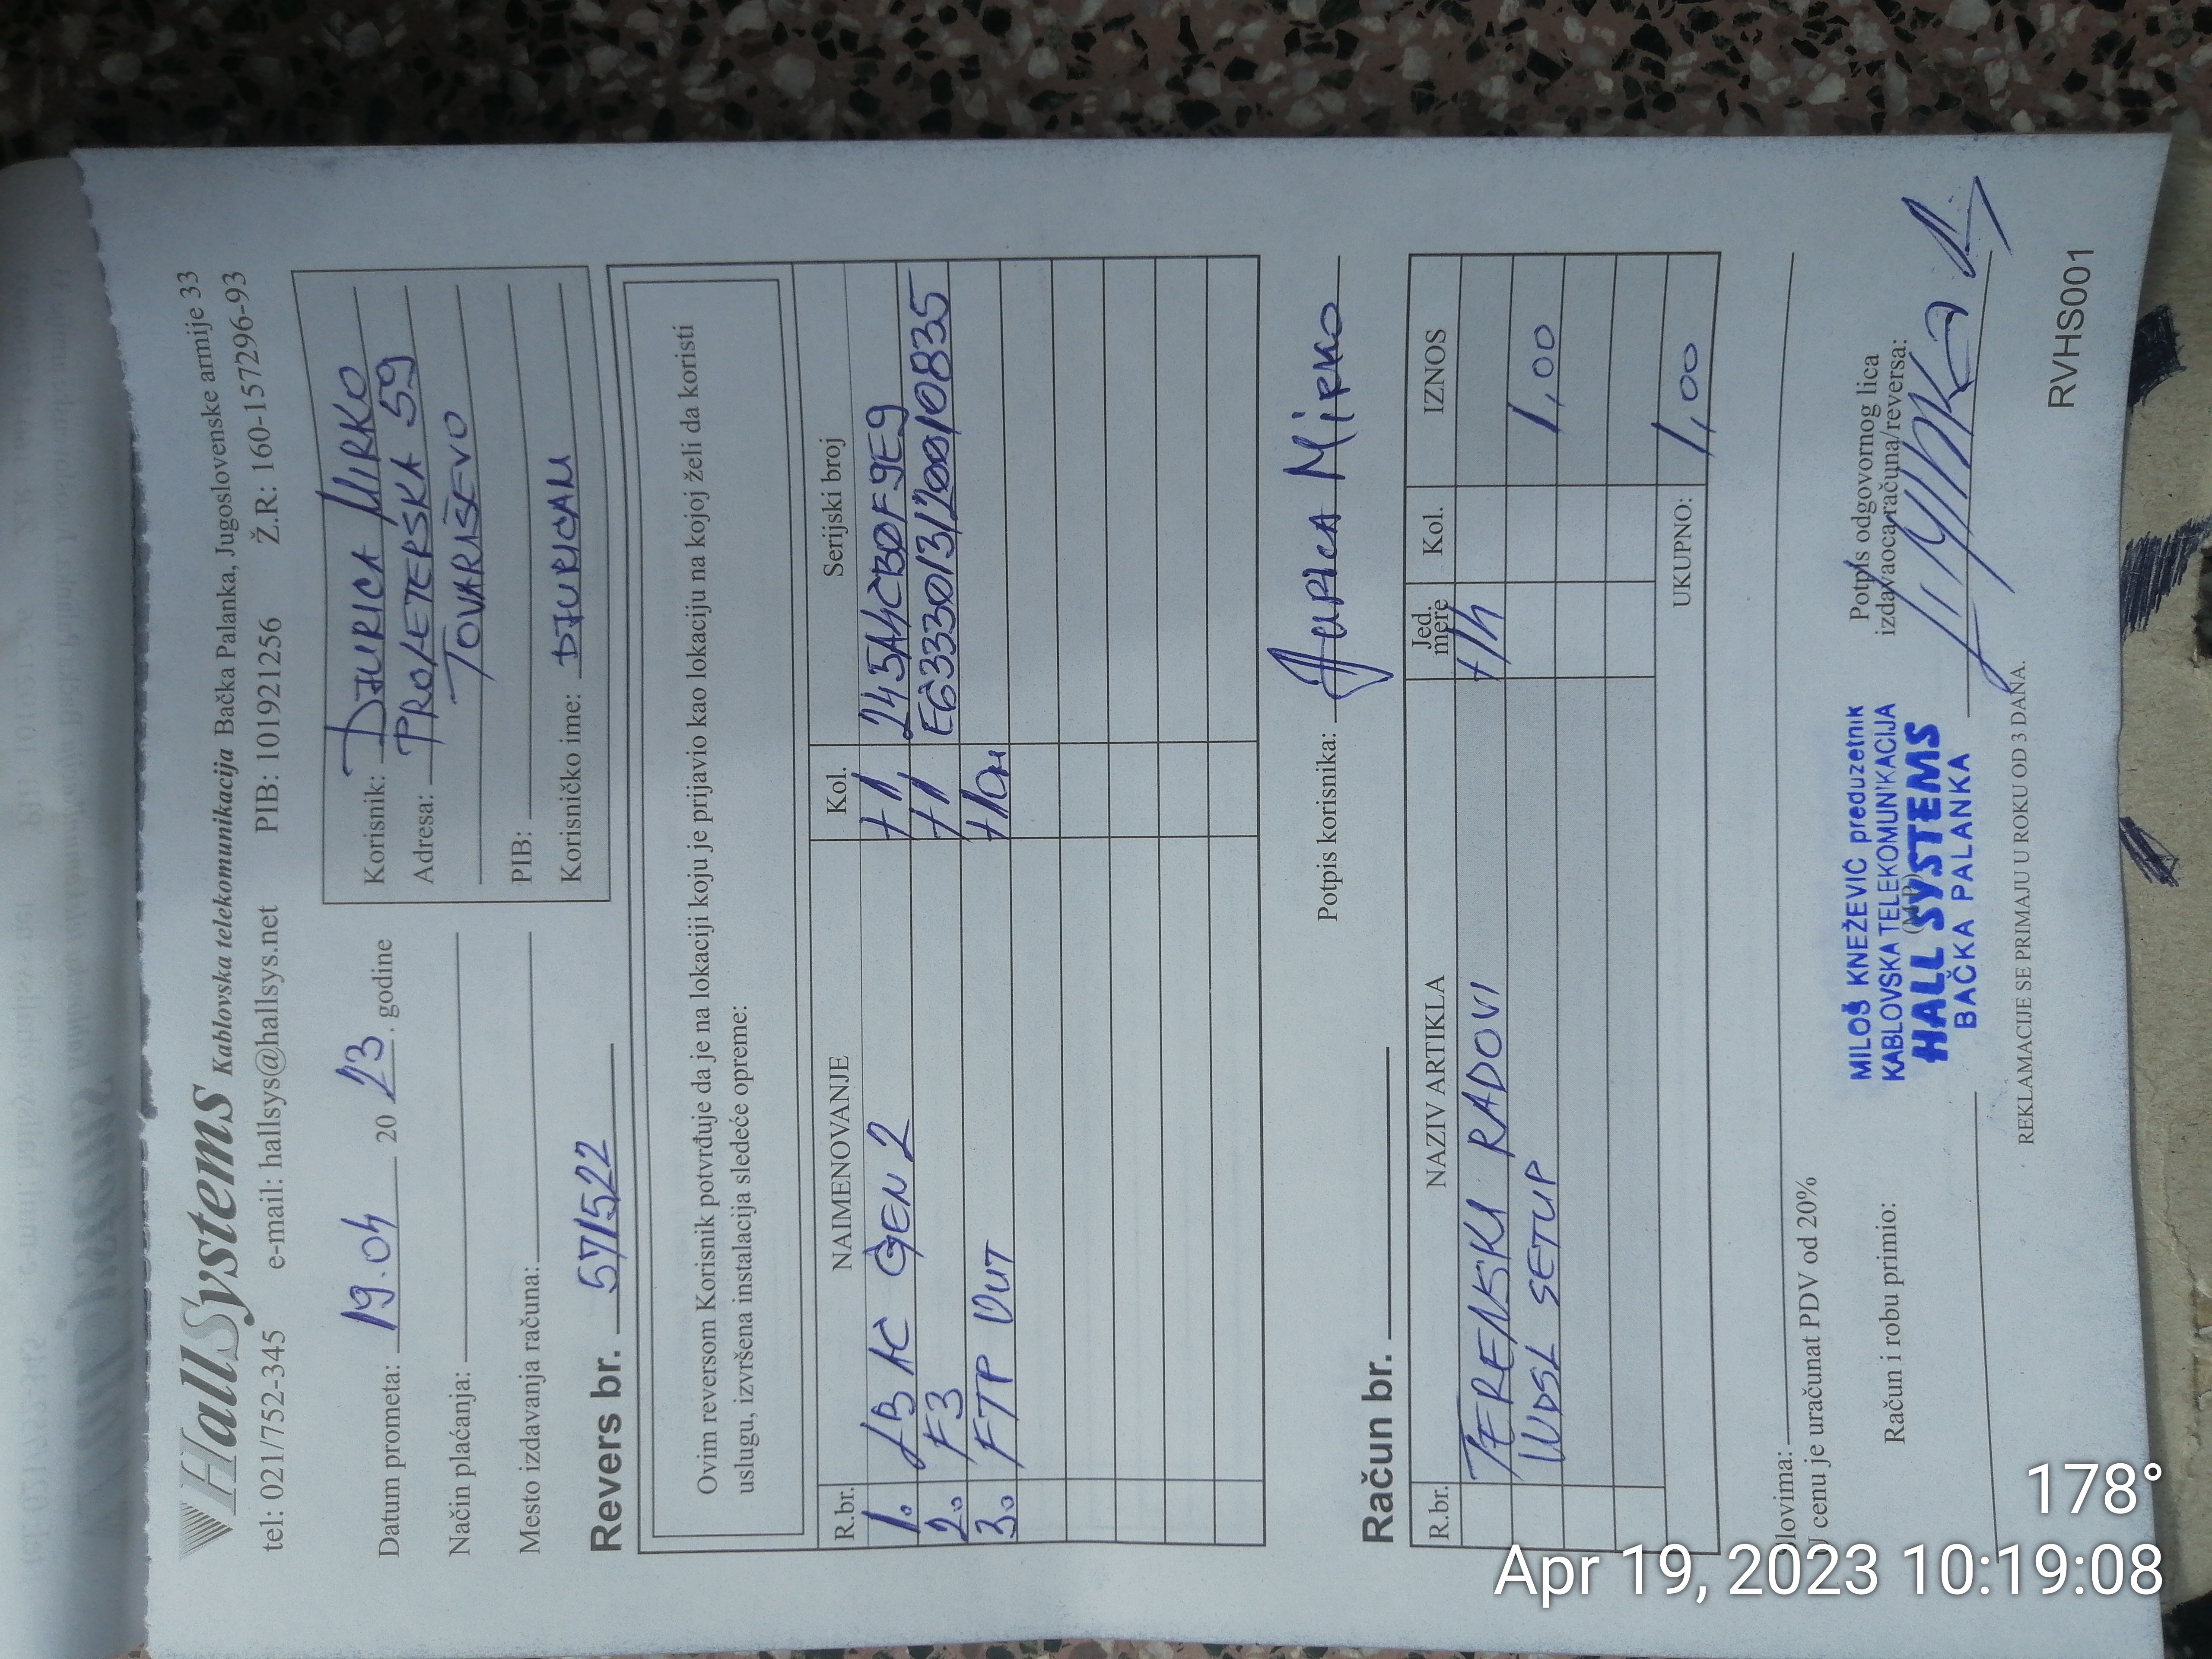 HallSystems Kablovska telekomunikacija Bačka Palanka, Jugoslovenske armije 33
tel: 021/752-345 e-mail: hallsys@hallsys.net PIB: 101921256 Ž.R: 160-157296-93
Datum prometa: 19.04 2023. godine
Način plaćanja:
Mesto izdavanja računa:
Korisnik: DJURICA MIRKO
Adresa: PROLETERSKA 59
TOVARIŠEVO
PIB:
Korisničko ime: DJURICAM
Revers br. 57/522
Ovim reversom Korisnik potvrđuje da je na lokaciji koju je prijavio kao lokaciju na kojoj želi da koristi
uslugu, izvršena instalacija sledeće opreme:
R.br. NAIMENOVANJE Kol. Serijski broj
1. LB AC GEN 2 +1 245A4CB0F9E9
2. F3 +1 E63330/13/200/10835
3. FTP OUT
Potpis korisnika: Ђурица Мирко
Račun br.
R.br. NAZIV ARTIKLA Jed. mere Kol. IZNOS
TERENSKI RADOVI +1h
WDSL SETUP 1,00
UKUPNO: 1,00
Slovima:
U cenu je uračunat PDV od 20%
Račun i robu primio:
MILOŠ KNEŽEVIĆ preduzetnik
KABLOVSKA TELEKOMUNIKACIJA
HALL SYSTEMS
BAČKA PALANKA
Potpis odgovornog lica
izdavaoca računa/reversa:
REKLAMACIJE SE PRIMAJU U ROKU OD 3 DANA.
RVHS001
178°
Apr 19, 2023 10:19:08